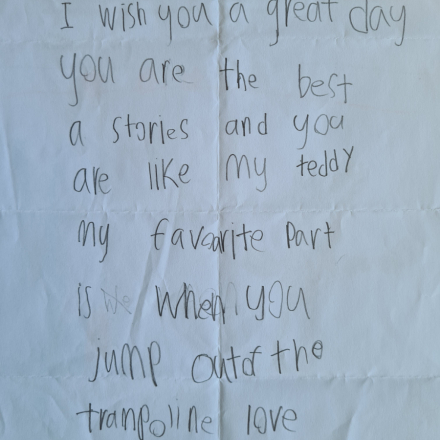 I wish you a great day
you are the best
a stories and you
are like my teddy
my favoarite part
is we when you
jump outof the
tranpoline love